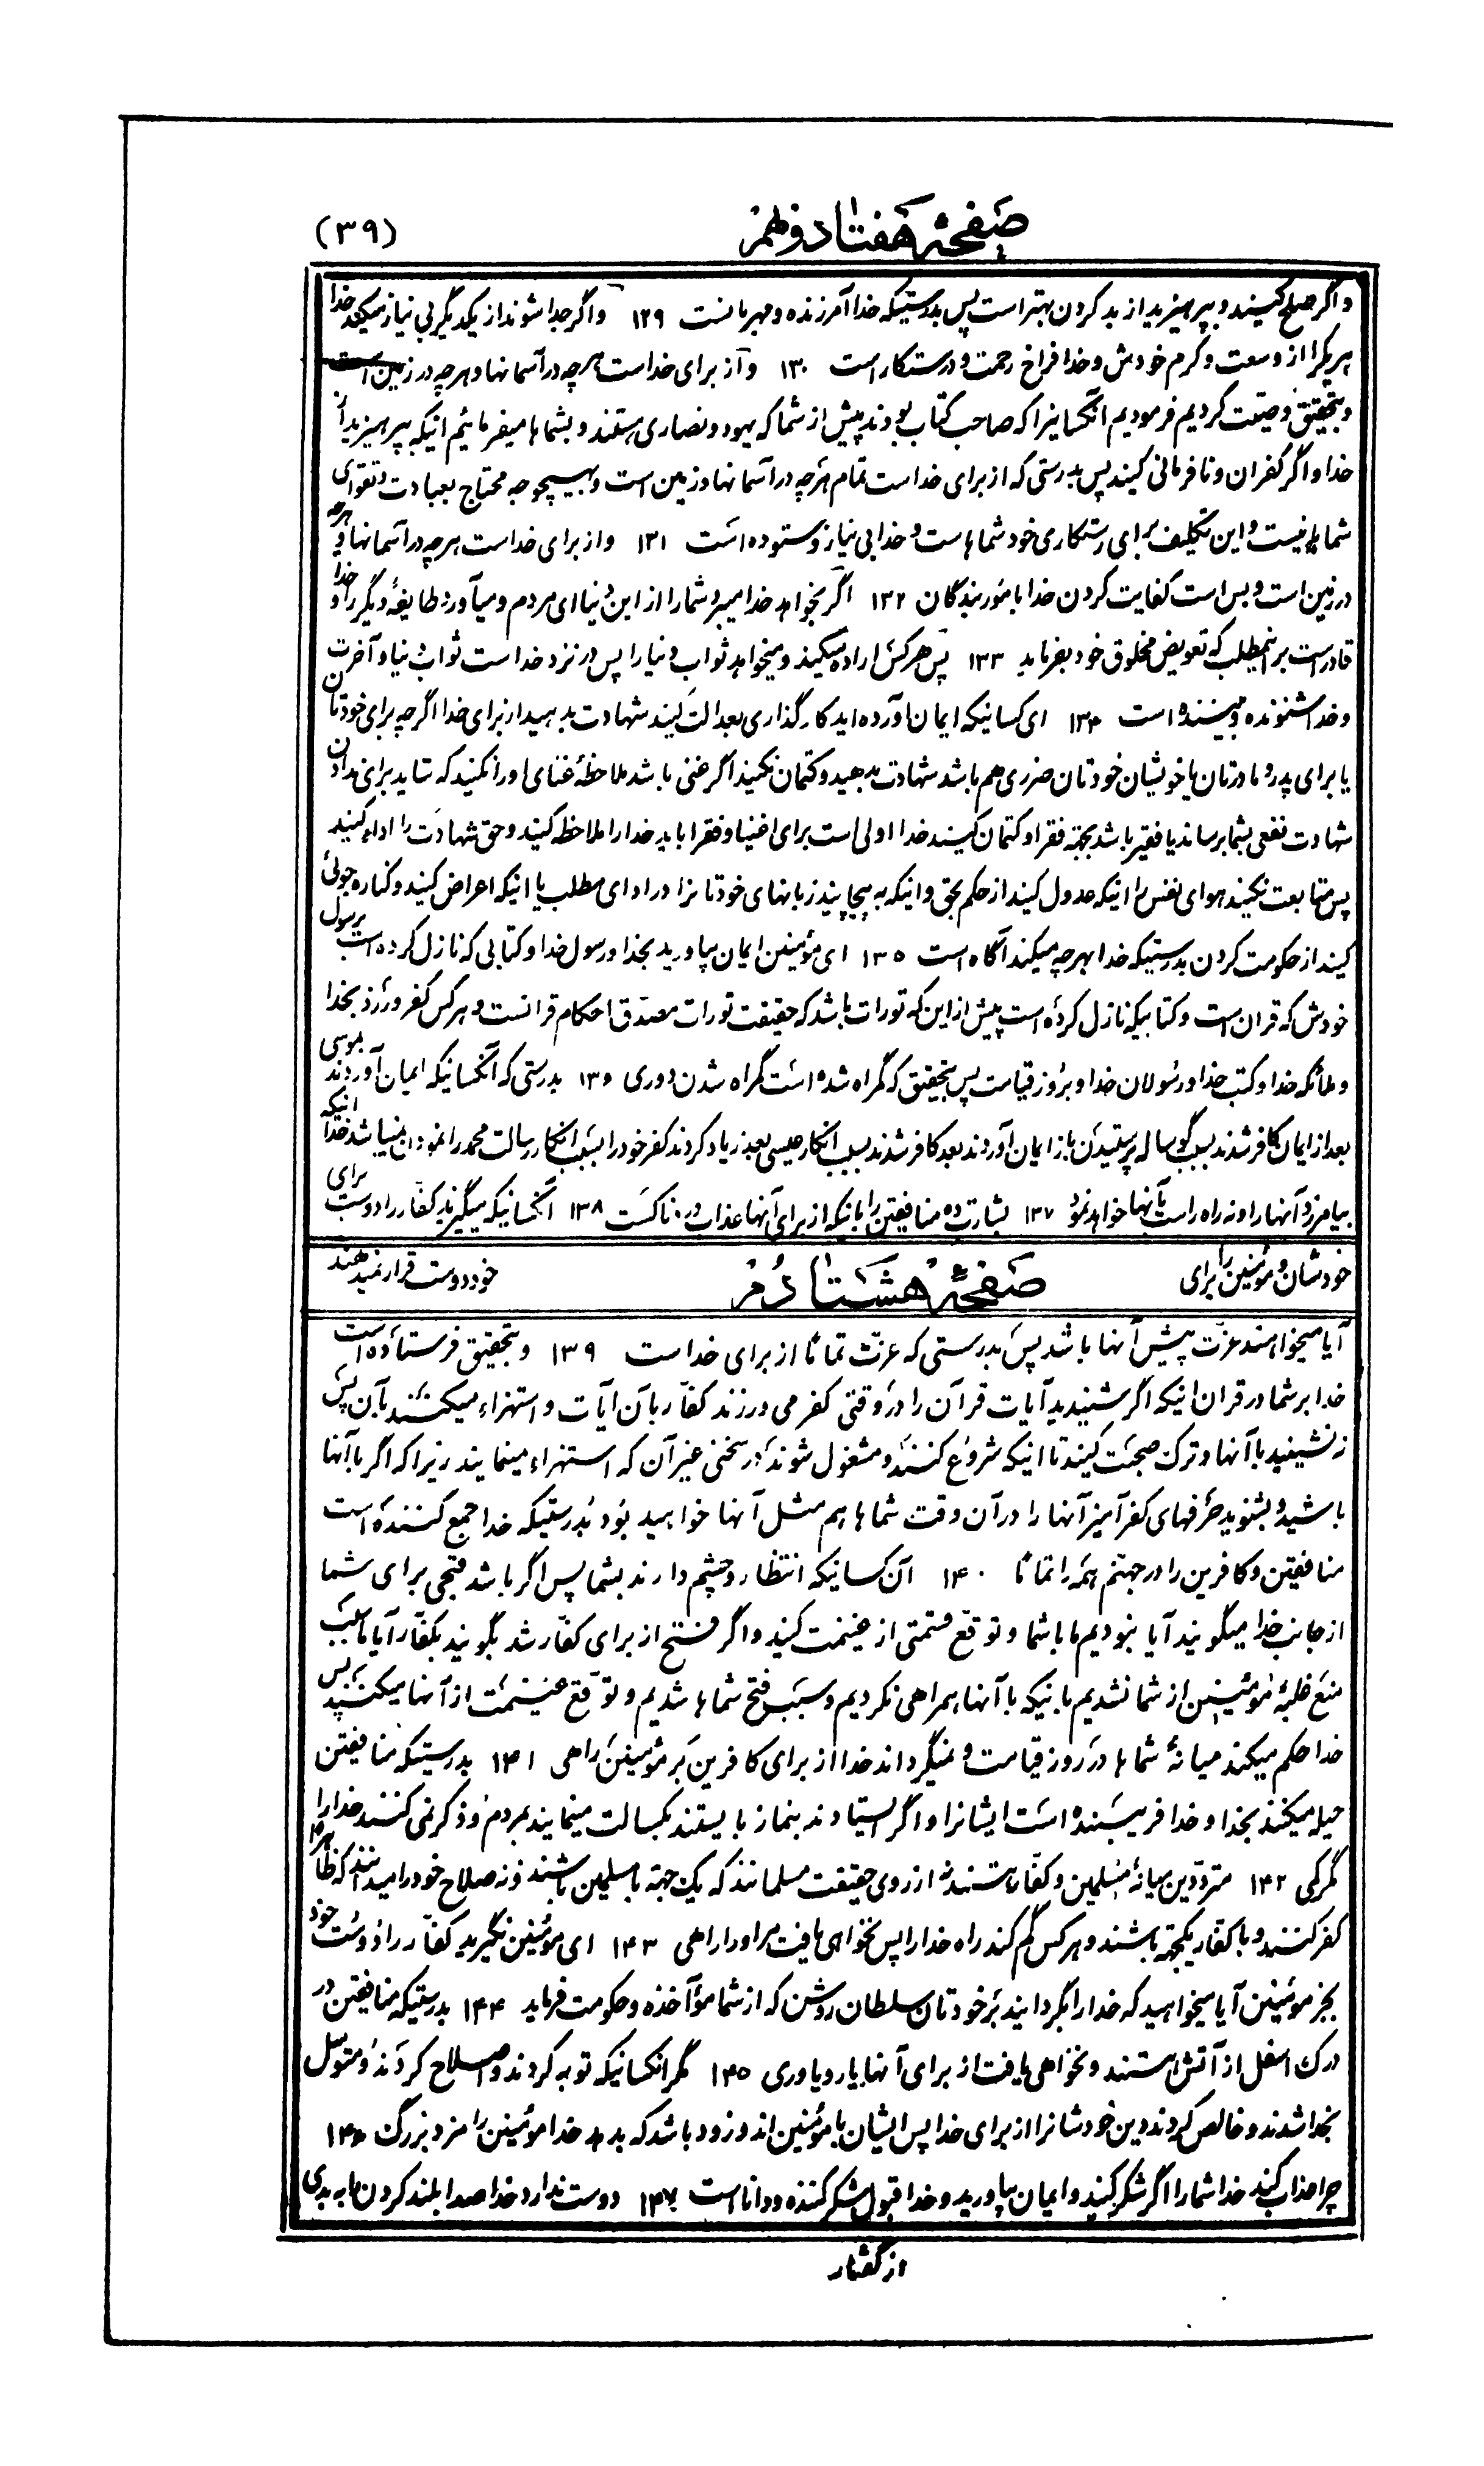 صفحهٔ هفتاد و نهم
(۳۹)
و اگر صلح کنید و بپرهیزید از بد کردن بهتر است پس بدرستیکه خدا آمرزنده و مهربانست ۱۲۹ و اگر جدا شوند از یکدیگر بی نیاز میکند خدا
هریکرا از وسعت و کرم خودش و خدا فراخ رحمت و درستکار است ۱۳۰ و از برای خداست هرچه در آسمانها و هرچه در زمین است
و بتحقیق وصیّت کردیم فرمودیم آنکسانیرا که صاحب کتاب بودند پیش از شما که یهود و نصاری هستند و بشماها میفرمائیم اینکه بپرهیزید از
خدا و اگر کفران و نافرمانی کنید پس بدرستی که از برای خداست تمام هرچه در آسمانها و زمین است و بهیچوجه محتاج بعبادت و تقوای
شماها نیست و این تکلیف برای رستکاری خود شماهاست و خدا بی نیاز و ستوده است ۱۳۱ و از برای خداست هرچه در آسمانها و هرچه
در زمین است و بس است کفایت کردن خدا بامور بندگان ۱۳۲ اگر بخواهد خدا میبرد شما را از این دنیا ای مردم و میآورد طایفهٔ دیگر را و خدا
قادر است بر اینمطلب که تعویض مخلوق خود بفرماید ۱۳۳ پس هر کس اراده میکند و میخواهد ثواب دنیا را پس در نزد خداست ثواب دنیا و آخرت
و خدا شنونده و بیننده است ۱۳۴ ای کسانیکه ایمان آورده اید کارگذاری بعدالت کنید شهادت بدهید از برای خدا اگرچه برای خودتان
یا برای پدر و مادرتان یا خویشان خودتان ضرری هم باشد شهادت بدهید و کتمان نکنید اگر غنی باشد ملاحظهٔ غنای او را نکنید که شاید برای ندادن
شهادت نفعی بشما برساند یا فقیر باشد بجهة فقر او کتمان کنید خدا اولی است برای اغنیا و فقرا باید خدا را ملاحظه کنید و حق شهادت را اداء کنید
پس متابعت نکنید هوای نفس را اینکه عدول کنید از حکم بحق و اینکه به پیچانید زبانهای خودتانرا در ادای مطلب یا اینکه اعراض کنید و کناره جوئی
کنید از حکومت کردن بدرستیکه خدا بهرچه میکنید آگاه است ۱۳۵ ای مؤمنین ایمان بیاورید بخدا و رسول خدا و کتابی که نازل کرده است برسول
خودش که قرآن است و کتابیکه نازل کرده است پیش از این که تورات باشد که حقیقت تورات مصدّق احکام قرآنست و هر کس کفر ورزد بخدا
و ملائکه خدا و کتب خدا و رسولان خدا و بروز قیامت پس بتحقیق که گمراه شده است گمراه شدن دوری ۱۳۶ بدرستی که آنکسانیکه ایمان آوردند بموسی
بعد از ایمان کافر شدند بسبب گوساله پرستیدن باز ایمان آوردند بعد کافر شدند بسبب انکار عیسی بعد زیاد کردند کفر خود را بسبب انکار رسالت محمد را نمودند نمیباشد خدا اینکه
بیامرزد آنها را و نه راه راست بآنها خواهد نمود ۱۳۷ بشارت ده منافقین را باینکه از برای آنها عذاب دردناکست ۱۳۸ آنکسانیکه میگیرند کفّار را دوست برای
خودشان و مؤمنین را برای
صفحهٔ هشتادم
خود دوست قرار نمیدهند
آیا میخواهند عزّت پیش آنها باشد پس بدرستی که عزّت تماماً از برای خداست ۱۳۹ و بتحقیق فرستاده است
خدا بر شما در قرآن اینکه اگر شنیدید آیات قرآن را در وقتی کفر می ورزند کفّار بآن آیات و استهزاء میکنند بآن پس
ننشینید با آنها و ترک صحبت کنید تا اینکه شروع کنند و مشغول شوند در سخنی غیر آن که استهزاء مینمایند زیرا که اگر با آنها
باشید و بشنوید حرفهای کفر آمیز آنها را در آن وقت شماها هم مثل آنها خواهید بود بدرستیکه خدا جمع کننده است
منافقین و کافرین را در جهنّم همه را تماماً ۱۴۰ آن کسانیکه انتظار و چشم دارند بشما پس اگر باشد فتحی برای شما
از جانب خدا میگویند آیا نبودیم ما با شما و توقّع قسمتی از غنیمت کنید و اگر فتح از برای کفّار شد بگویند بکفّار آیا ما سبب
منع غلبهٔ مؤمنین از شما نشدیم باینکه با آنها همراهی نکردیم و سبب فتح شماها شدیم و توقّع غنیمت از آنها میکنند پس
خدا حکم میکند میانهٔ شماها در روز قیامت و نمیگرداند خدا از برای کافرین بر مؤمنین راهی ۱۴۱ بدرستیکه منافقین
حیله میکنند بخدا و خدا فریبنده است ایشانرا و اگر ایستادند بنماز بایستند بکسالت مینمایند بمردم و ذکر نمی کنند خدا را
مگر کمی ۱۴۲ متردّدین میانهٔ مسلمین و کفّار هستند نه از روی حقیقت مسلمانند که یک جهة با مسلمین باشند و نه صلاح خود را میدانند که ظاهراً
کفر کنند و با کفّار یکجهة باشند و هر کس گم کند راه خدا را پس نخواهی یافت مر او را راهی ۱۴۳ ای مؤمنین نگیرید کفّار را دوست خود
بجز مؤمنین آیا میخواهید که خدا را بگردانید بر خودتان سلطان روشن که از شما مؤآخذه و حکومت فرماید ۱۴۴ بدرستیکه منافقین در
درک اسفل از آتش هستند و نخواهی یافت از برای آنها یار و یاوری ۱۴۵ مگر آنکسانیکه توبه کردند و اصلاح کردند و متوسل
بخدا شدند و خالص کردند دین خودشانرا از برای خدا پس ایشان با مؤمنین اند و زود باشد که بدهد خدا مؤمنین را مزد بزرگ ۱۴۶
چرا عذاب کند خدا شما را اگر شکر کنید و ایمان بیاورید و خدا قبول شکر کننده و دانا است ۱۴۷ دوست ندارد خدا صدا بلند کردن را به بدی
از گفتار